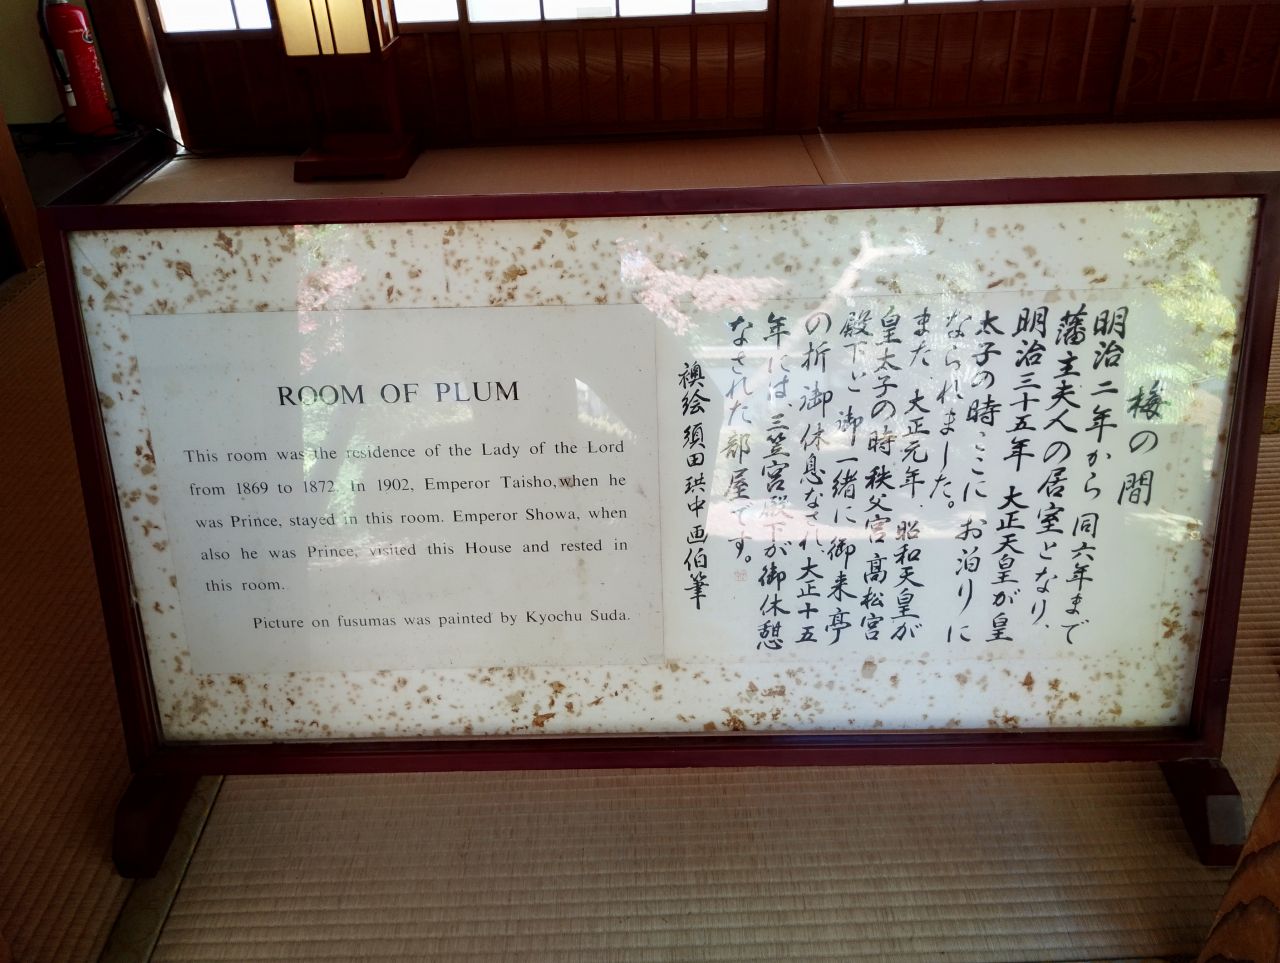 ROOM OF PLUM
This room was the residence of the Lady of the Lord
from 1869 to 1872. In 1902, Emperor Taisho, when he
was Prince, stayed in this room. Emperor Showa, when
also he was Prince, visited this House and rested in
this room.
Picture on fusumas was painted by Kyochu Suda.
梅の間
明治二年から同六年まで
藩主夫人の居室となり、
明治三十五年 大正天皇が皇
太子の時、ここに お泊りに
なられました。
また 大正元年、昭和天皇が
皇太子の時 秩父宮 高松宮
殿下と 御一緒に御来亭
の折 御休息なされ、大正十五
年には、三笠宮殿下が御休憩
なされた部屋です。
襖絵 須田珙中画伯筆